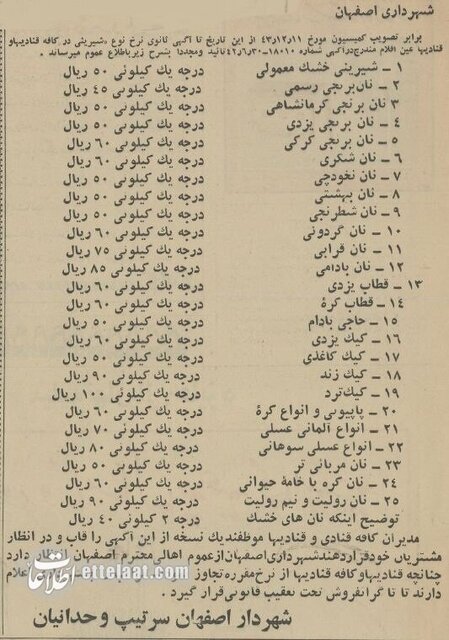 شهرداری اصفهان
برابر تصویب کمیسیون مورخ ۴۳٫۱۲٫۱۱ از این تاریخ تا آگهی ثانوی نرخ نوع «شیرینی در کافه قنادیها و
قنادیها عین اقلام مندرج در آگهی شماره ۱۸۰۱۰ــ۴۲٫۶٫۳۰ تائید و مجددا بشرح زیر باطلاع عموم میرساند .
۱ ــ شیرینی خشك معمولی درجه یك کیلوئی ۵۰ ریال
۲ ــ نان برنجی رسمی درجه یك کیلوئی ۴۵ ریال
۳ ــ نان برنجی کرمانشاهی درجه یك کیلوئی ۵۰ ریال
۴ ــ نان برنجی یزدی درجه یك کیلوئی ۵۰ ریال
۵ ــ نان برنجی کرکی درجه یك کیلوئی ۶۰ ریال
۶ ــ نان شکری درجه یك کیلوئی ۵۰ ریال
۷ ــ نان نخودچی درجه یك کیلوئی ۵۰ ریال
۸ ــ نان بهشتی درجه یك کیلوئی ۵۰ ریال
۹ ــ نان شطرنجی درجه یك کیلوئی ۵۰ ریال
۱۰ ــ نان گردوئی درجه یك کیلوئی ۶۰ ریال
۱۱ ــ نان قرابی درجه یك کیلوئی ۷۵ ریال
۱۲ ــ نان بادامی درجه یك کیلوئی ۸۵ ریال
۱۳ ــ قطاب یزدی درجه یك کیلوئی ۶۰ ریال
۱۴ ــ قطاب کرهٔ درجه یك کیلوئی ۶۰ ریال
۱۵ ــ حاجی بادام درجه یك کیلوئی ۵۰ ریال
۱۶ ــ کیك یزدی درجه یك کیلوئی ۶۰ ریال
۱۷ ــ کیك کاغذی درجه یك کیلوئی ۵۰ ریال
۱۸ ــ کیك زند درجه یك کیلوئی ۹۰ ریال
۱۹ ــ کیك ترد درجه یك کیلوئی ۱۰۰ ریال
۲۰ ــ پاپیونی و انواع کرهٔ درجه یك کیلوئی ۶۰ ریال
۲۱ ــ انواع آلمانی عسلی درجه یك کیلوئی ۷۰ ریال
۲۲ ــ انواع عسلی سوهانی درجه یك کیلوئی ۶۰ ریال
۲۳ ــ نان مربائی تر درجه یك کیلوئی ۵۰ ریال
۲۴ ــ نان کره با خامهٔ حیوانی درجه یك کیلوئی ۶۰ ریال
۲۵ ــ نان رولیت و نیم رولیت درجه یك کیلوئی ۹۰ ریال
توضیح اینکه نان های خشك درجه ۲ کیلوئی ۴۰ ریال
مدیران کافه قنادی و قنادیها موظفند یك نسخه از این آگهی را قاب و در انظار
مشتریان خود قرار دهند شهرداری اصفهان از عموم اهالی محترم اصفهان دارد
چنانچه قنادیها و کافه قنادیها از نرخ مقرره تجاوز اعلام
دارند تا گرانفروش تحت تعقیب قانونی قرار گیرد .
شهردار اصفهان سرتیپ وحدانیان
اطلاعات ettelaat.com